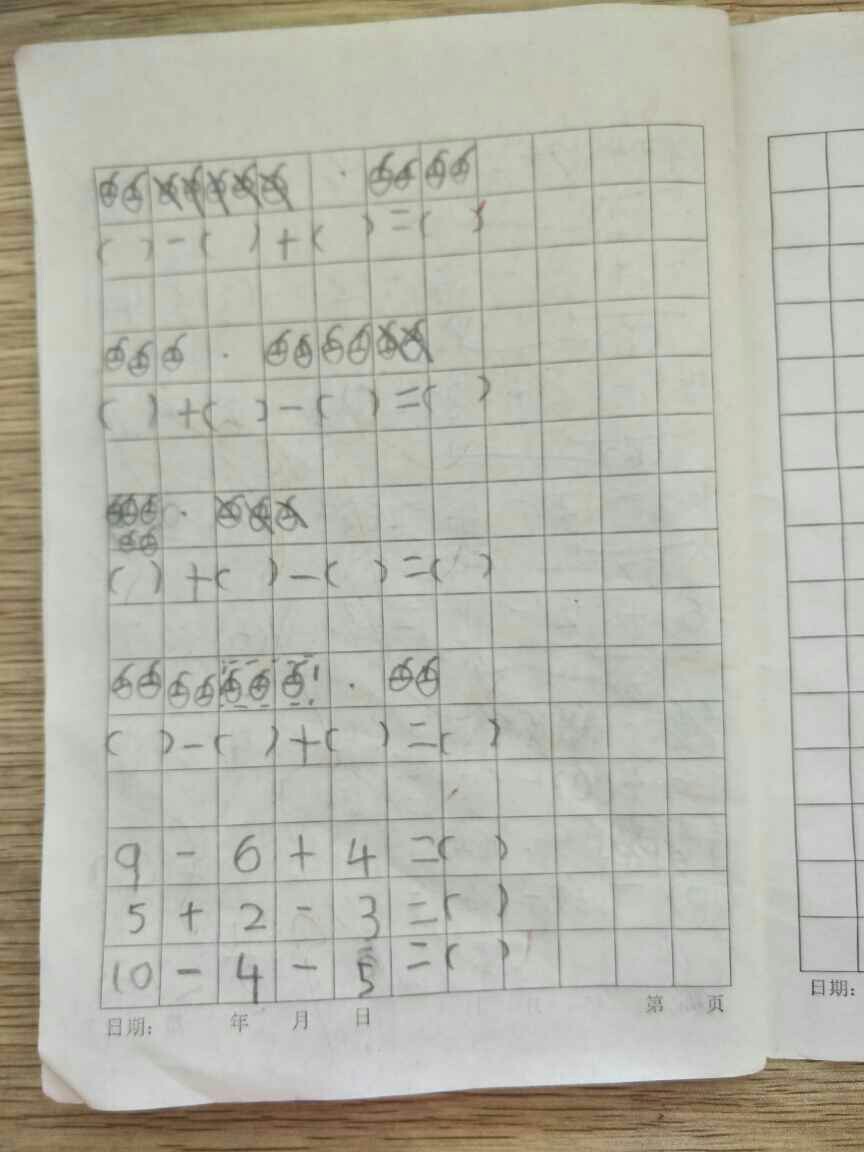 ( ) - ( ) + ( ) = ( )
( ) + ( ) - ( ) = ( )
( ) + ( ) - ( ) = ( )
( ) - ( ) + ( ) = ( )
9 - 6 + 4 = ( )
5 + 2 - 3 = ( )
10 - 4 - 5 = ( )
日期: 年 月 日 第 页
日期: